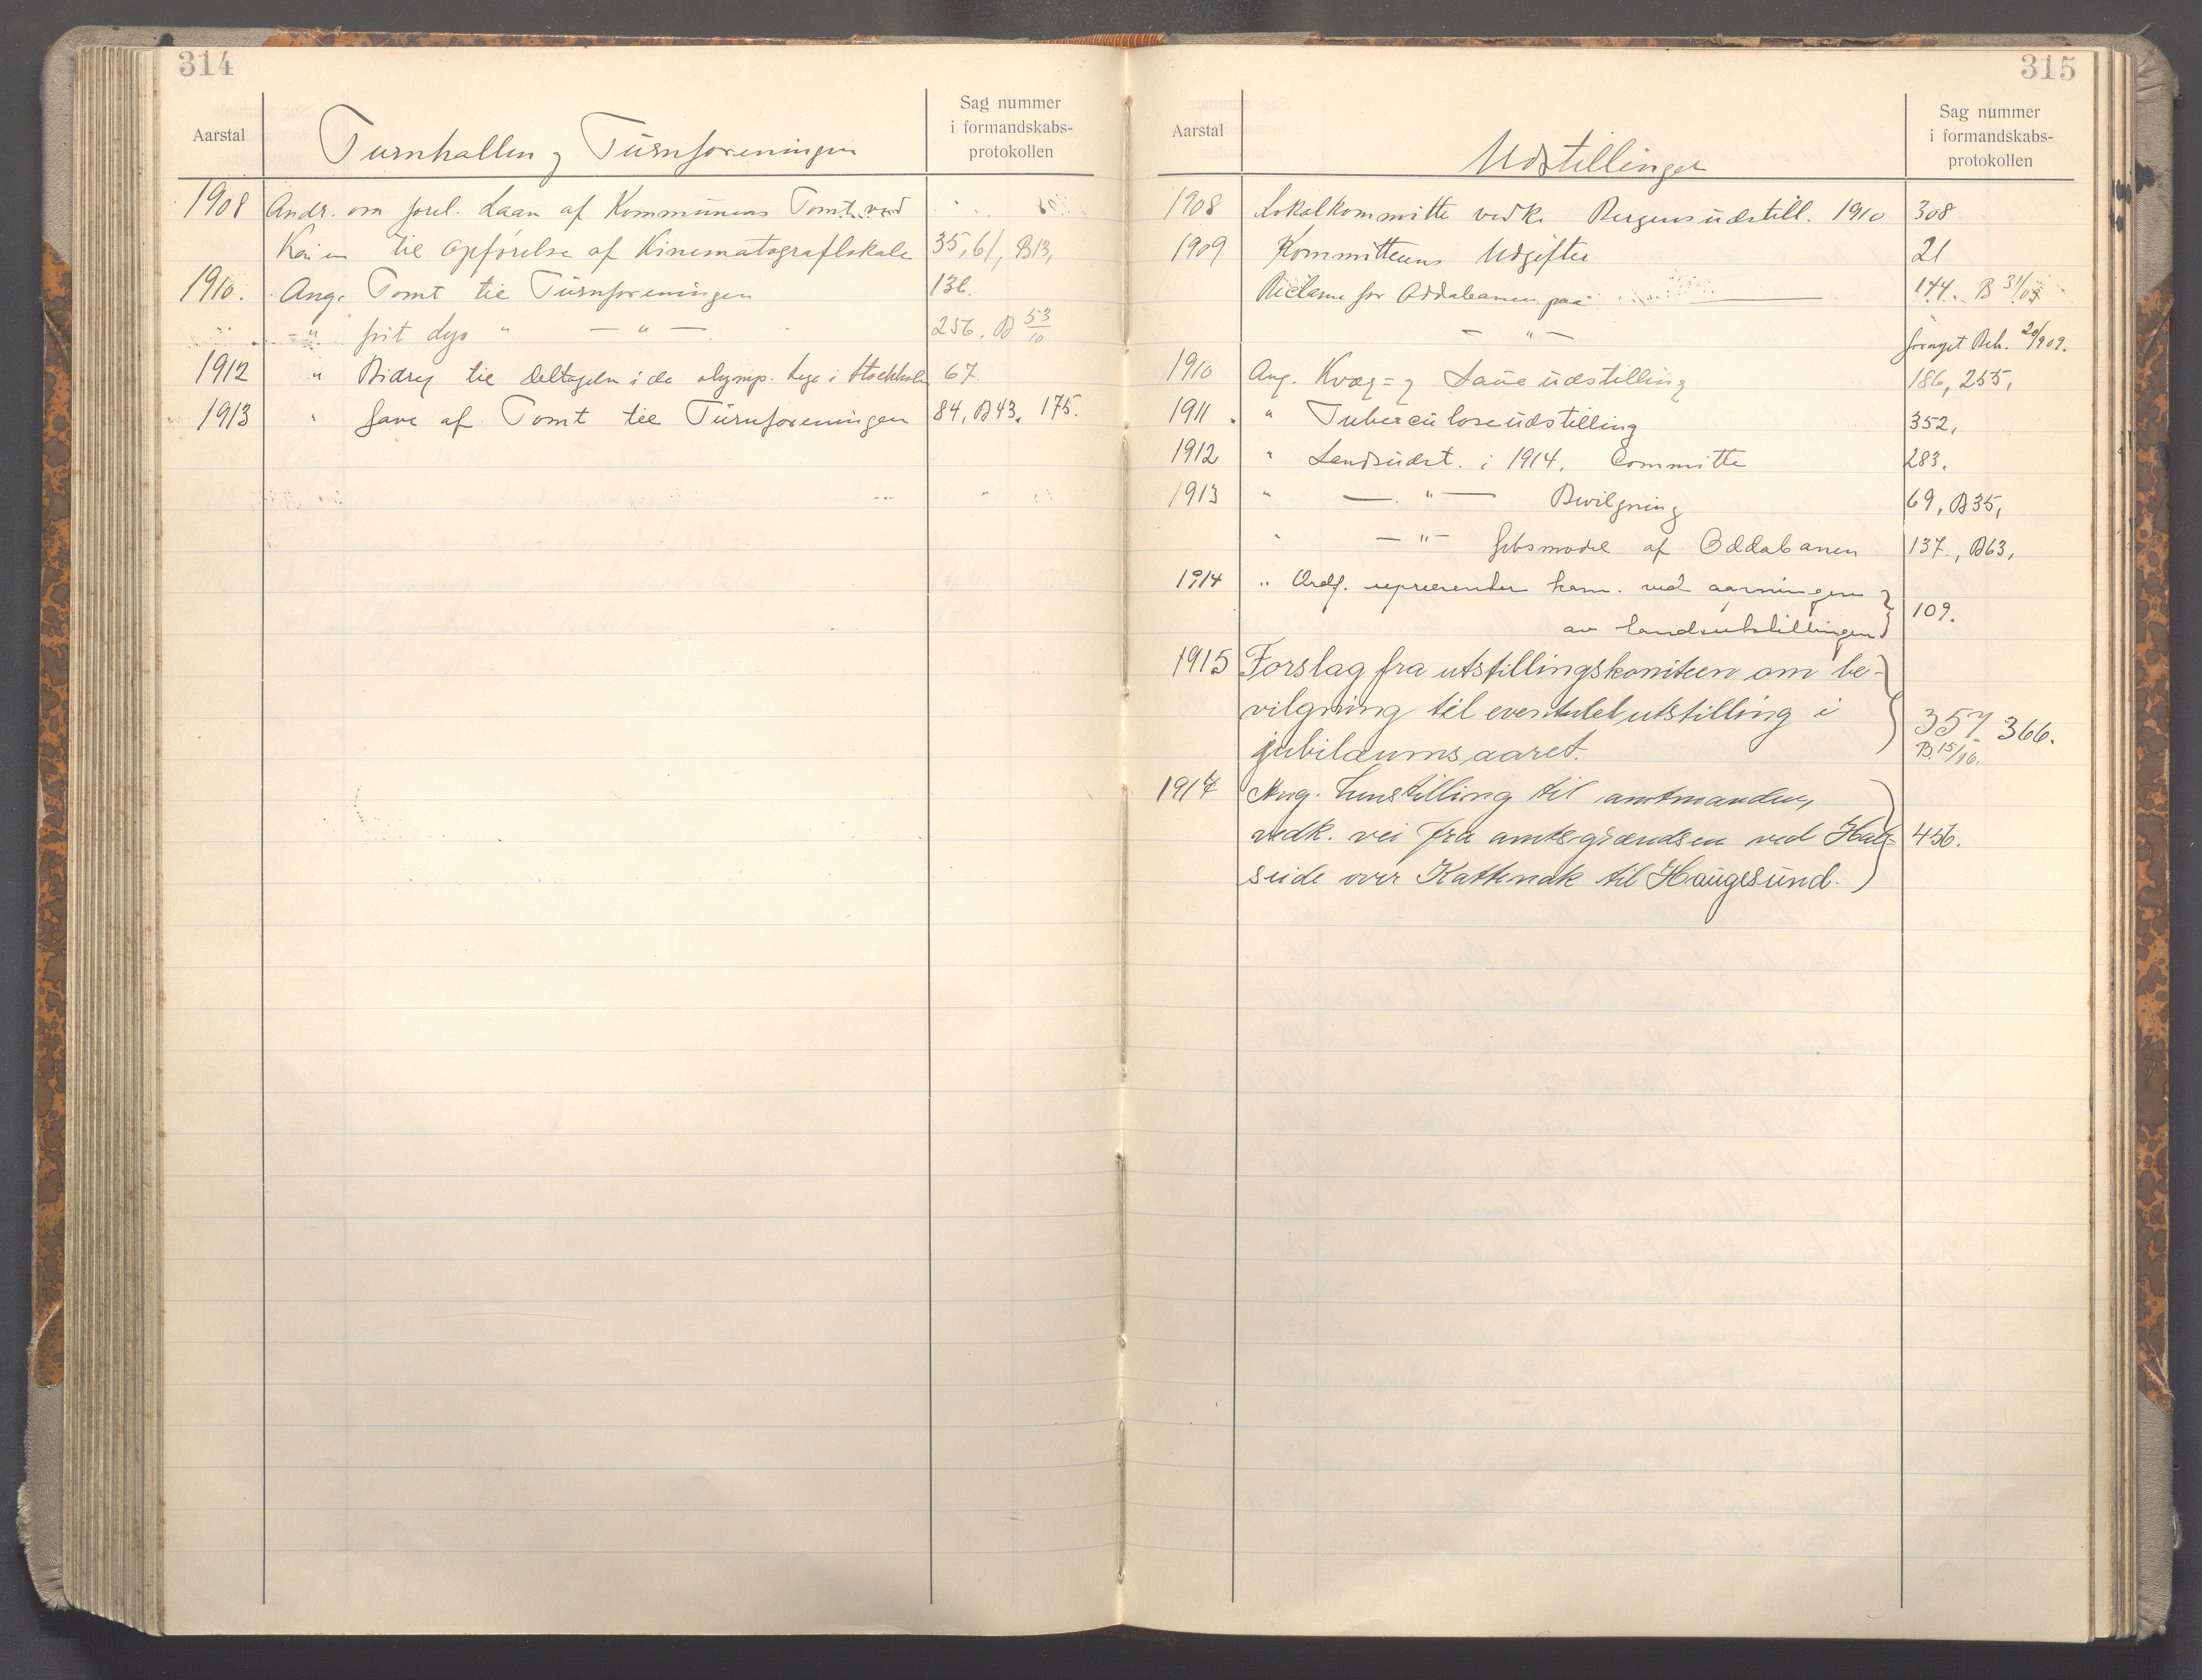 314
Aarstal
Turnhallen og Turnforeningen
Sag nummer
i formandskabs-
protokollen
1908 Andr. om forel. Laan af Kommunens Tomt ved
Kaien til Opførelse af Kinematograflokale 35, 61, B13,
1910. Ang. Tomt til Turnforeningen 136.
" frit Lys " — " — 256. B 53/10
1912 " Bidrag til Deltagelse i de olymp. Lege i Stockholm 67.
1913 " Gave af Tomt til Turnforeningen 84, B43, 175.
315
Aarstal
Udstillinger
Sag nummer
i formandskabs-
protokollen
1908 Lokalkommitte vedk. Bergensudstill. 1910 308
1909 Kommitteens Udgifter 21
Reclame for Oddabanen paa — 144. B 31/09
— " — Beh. 20/909.
1910 Ang. Kvæg= og Saueudstilling 186, 255,
1911 " Tuberculoseudstilling 352,
1912 " Landsudst. i 1914. Committe 283.
1913 " — " — Bevilgning 69, B35,
" — " — Gibsmodel af Oddabanen 137., B63,
1914 " Ordf. representer kom. ved aapningen
av landsutstillingen 109.
1915 Forslag fra utstillingskomiteen om be-
vilgning til eventulel utstilling i
jubilæumsaaret. 357, 366.
B. 15/16.
1917 Ang. henstilling til amtmanden,
vedk. vei fra amtsgrændsen ved Hal-
seide over Kattenak til Haugesund. 456.